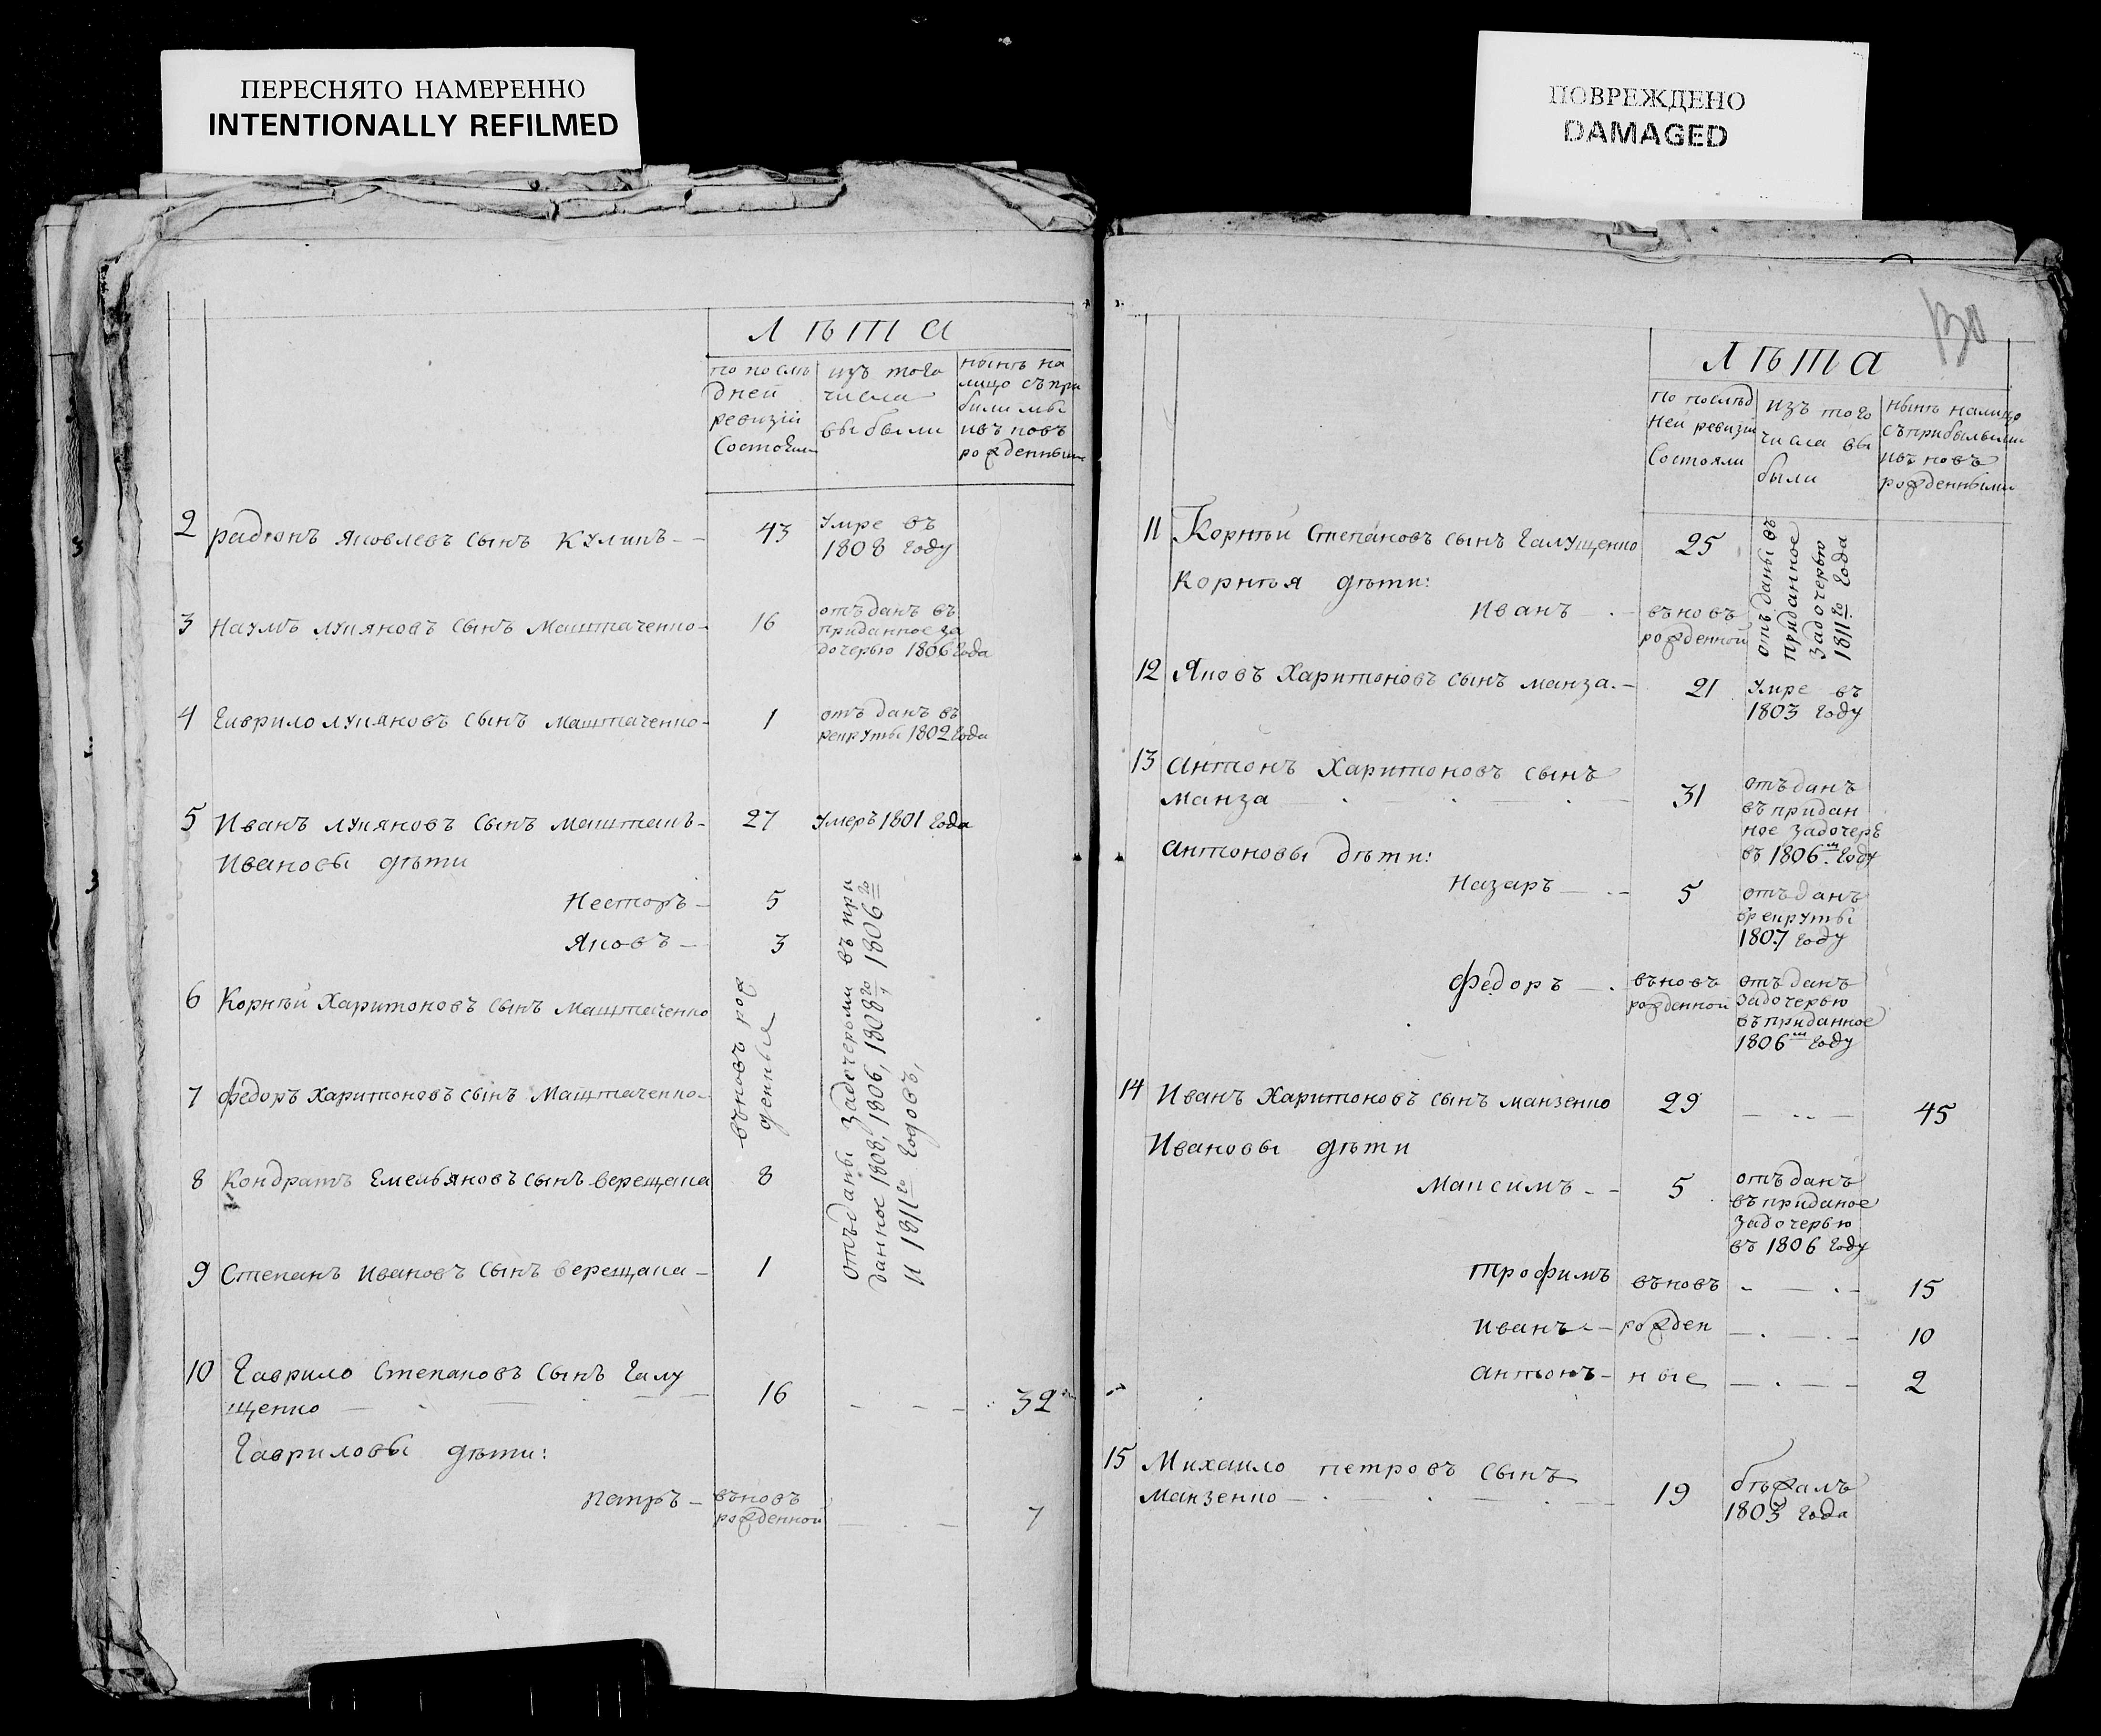 ПЕРЕСНЯТО НАМЕРЕННО
INTENTIONALLY REFILMED
Лѣта
по послѣ
дней
ревизіи
Состояли
изъ того
числа
выбыли
нынѣ на
лицо съ при
былымы
ивъ новъ
рожденными
2 радионъ Яковлевъ сынъ Куликъ
43
Умре въ
1808 году
3 Наумъ лукяновъ сынъ Маштаченко
16
отъданъ въ
приданное за
дочерью 1806 года
4 Гаврило лукяновъ сынъ Маштаченко
1
отъ данъ въ
рекруты 1802 года
5 Иванъ лукяновъ сынъ маштакъ
27
Умеръ 1801 года
Ивановы дѣти
Несторъ
5
Яковъ
3
6 Корнѣй Харитоновъ сынъ Маштаченко
въновъ рож
денные
отъ даны задочерьми въ при
данное 1808, 1806, 1808го, 1806го
и 1811го годовъ,
7 федоръ Харитоновъ сынъ Маштаченко
8 Кондратъ Емельяновъ сынъ верещака
8
9 Степанъ Ивановъ сынъ верещака
1
10 Гаврило Степановъ сынъ Галу
щенко
16
32
Гавриловы дѣти:
Петръ
въновъ
рожденной
7
ПОВРЕЖДЕНО
DAMAGED
130
Лѣта
по послѣд
ней ревизіи
Состояли
изъ того
числа вы
были
нынѣ налицо
съприбылыми
ивъ новъ
рожденными
11 Корнѣй Степановъ сынъ Галущенко
25
отъ даны въ
приданное
задочерью
1811го года
Корнѣя дѣти:
Иванъ
въновъ
рожденной
12 Яковъ Харитоновъ сынъ манза.
21
Умре въ
1803 году
13 Антонъ Харитоновъ сынъ
манза
31
отъданъ
въ придан
ное задочеръ
въ 1806м году
антоновы дѣти:
Назаръ
5
отъданъ
врекруты
1807 году
Федоръ
въновъ
рожденной
отъданъ
задочерью
въ приданное
1806м году
14 Иванъ Харитоновъ сынъ манзенко
29
45
Ивановы дѣти
Максимъ
5
отъданъ
въ приданое
задочерью
въ 1806 году
Трофимъ
въновъ
15
Иванъ
рожден
10
антонъ
ные
2
15 Михаило петровъ сынъ
манзенко
19
бѣжалъ
1803 года